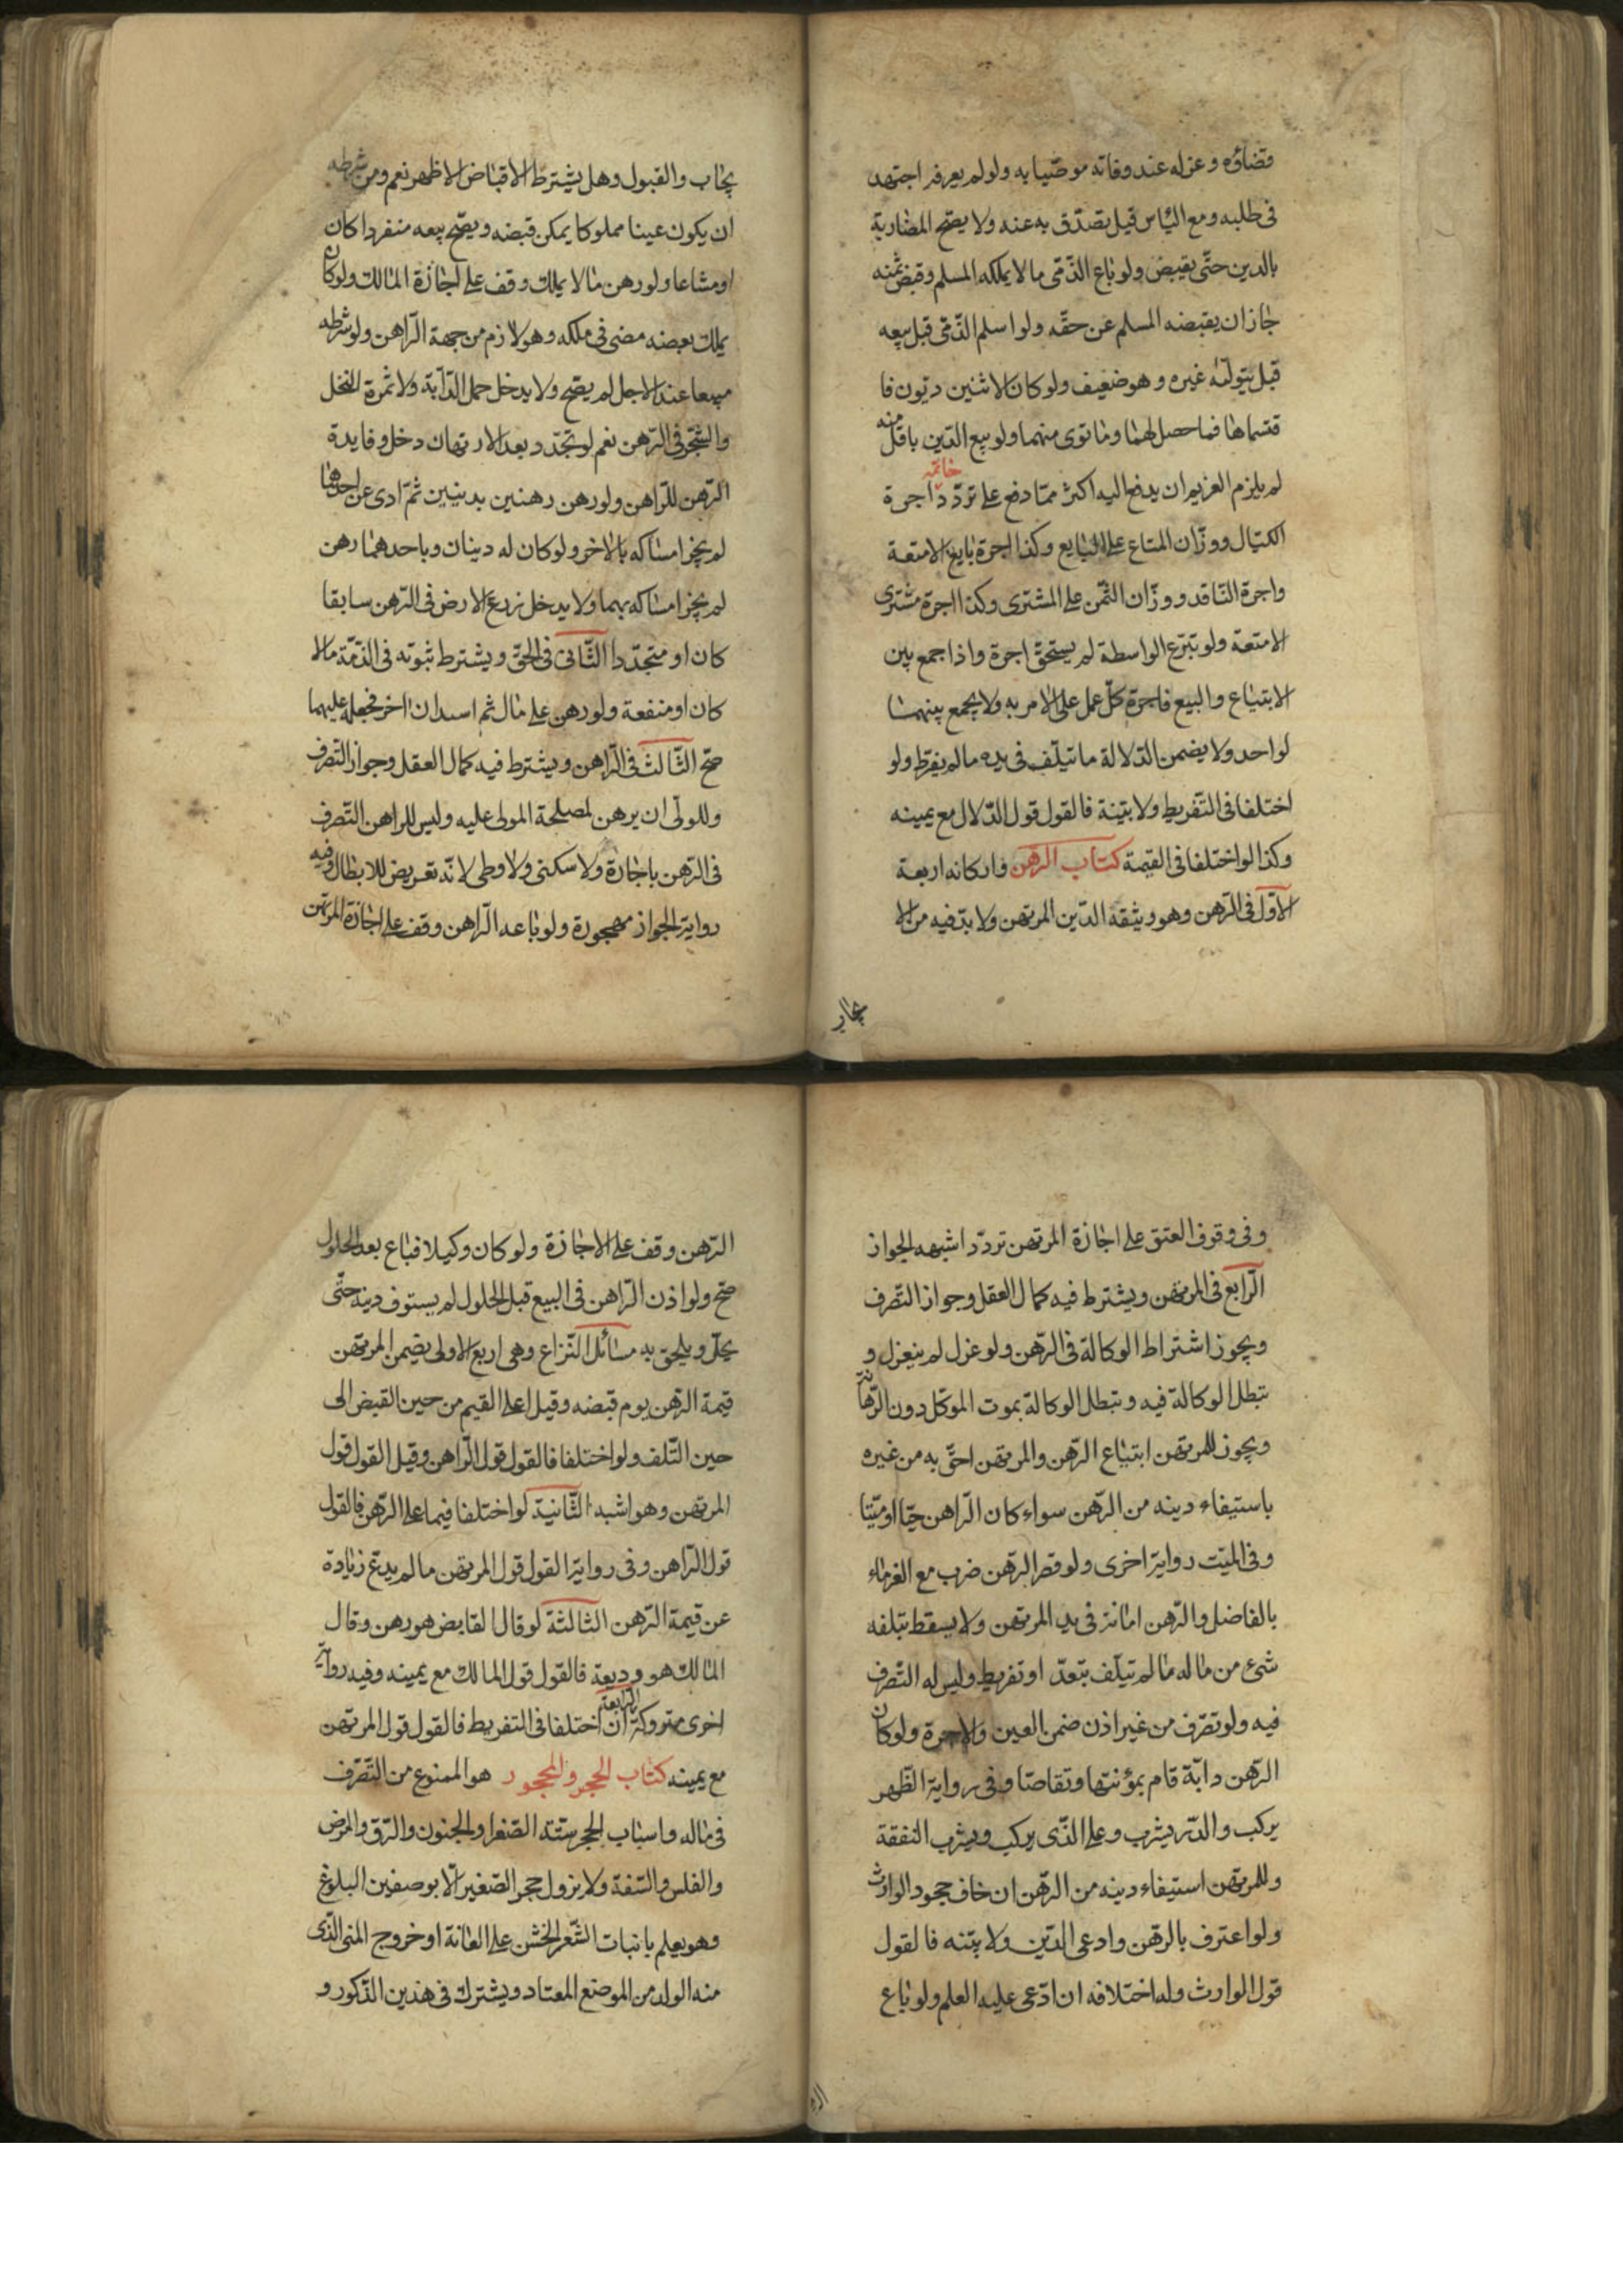 قضاؤه وعزله عند وفاته موصّيا به ولو لم يعرفه اجتهد
فى طلبه ومع الياس قيل يتصدّق به عنه ولا يصحّ المضاربة
بالدين حتّى يقبض ولو باع الذّمّى ما لا يملكه المسلم وقبض ثمنه
جاز ان يقبضه المسلم عن حقّه ولو اسلم الذّمّى قبل بيعه
قيل يتولّاه غيره وهو ضعيف ولو كان لاثنين ديون فا
قتسماها فما حصل لهما وما توى منهما ولو بيع الدّين باقلّ منه
لم يلزم الغريم ان يدفع اليه اكثر ممّا دفع على تردّد خاتمه اجرة
الكيّال ووزّان المتاع على البايع وكذا اجرة بايع الامتعة
واجرة النّاقد ووزّان الثّمن على المشترى وكذا اجرة مشترى
الامتعة ولو تبرّع الواسطة لم يستحقّ اجرة واذا جمع بين
الابتياع والبيع فاجرة كلّ عمل على الامر به ولا يجمع بينهما
لواحد ولا يضمن الدّلالة ما يتلف فى يده ما لم يفرّط ولو
اختلفا فى التّفريط ولا بيّنة فالقول قول الدّلال مع يمينه
وكذا لو اختلفا فى القيمة كتاب الرّهن واركانه اربعة
الاوّل فى الرّهن وهو وثيقة الدّين المرتهن ولا بدّ فيه من الا
يجاب
يجاب والقبول وهل يشترط الاقباض الاظهر نعم ومن شرطه
ان يكون عينا مملوكا يمكن قبضه ويصحّ بيعه منفردا كان
او مشاعا ولو رهن ما لا يملك وقف على اجازة المالك ولو كان
يملك بعضه مضى فى ملكه وهو لازم من جهة الرّاهن ولو شرطه
مبيعا عند الاجل لم يصحّ ولا يدخل حمل الدّابّة ولا ثمرة النخل
والشّجر فى الرّهن نعم لو تجدّد بعد الارتهان دخل وفايدة
الرّهن للرّاهن ولو رهن رهنين بدينين ثمّ ادى عن احدهما
لم يجز امساكه بالاخر ولو كان له دينان وباحدهما رهن
لم يجز امساكه بهما ولا يدخل زرع الارض فى الرّهن سابقا
كان او متجدّدا الثّانى فى الحقّ ويشترط ثبوته فى الذّمّة مالا
كان او منفعة ولو رهن على مال ثم استدان اخر فجعله عليهما
صحّ الثّالث فى الرّاهن ويشترط فيه كمال العقل وجواز التّصرف
وللولّى ان يرهن لمصلحة المولى عليه وليس للراهن التّصرف
فى الرّهن باجارة ولا سكنى ولا وطى لانّه تعريض للابطال وفيه
رواية الجواز مهجورة ولو باعه الرّاهن وقف على اجازة المرتهن
وفى وقوف العتق على اجازة المرتهن تردّد اشبهه الجواز
الرّابع فى المرتهن ويشترط فيه كمال العقل وجواز التّصرف
ويجوز اشتراط الوكالة فى الرّهن ولو عزل لم ينعزل و
تبطل الوكالة فيه وتبطل الوكالة بموت الموكّل دون الرّهانة
ويجوز للمرتهن ابتياع الرّهن والمرتهن احقّ به من غيره
باستيفاء دينه من الرّهن سواء كان الرّاهن حيّا او ميّتا
وفى الميّت رواية اخرى ولو قصر الرّهن ضرب مع الغرماء
بالفاضل والرّهن امانة فى يد المرتهن ولا يسقط بتلفه
شئ من ماله ما لم يتلف بتعدّ او تفريط وليس له التّصرف
فيه ولو تصرّف من غير اذن ضمن العين والاجرة ولو كان
الرّهن دابّة قام بمؤنتها وتقاصّا وفى رواية الظّهر
يركب والدّر يشرب وعلى الذّى يركب ويشرب النفقة
وللمرتهن استيفاء دينه من الرّهن ان خاف جحود الوارث
ولو اعترف بالرّهن وادعى الدّين ولا بيّنه فالقول
قول الوارث وله احلافه ان ادّعى عليه العلم ولو باع
الرّهن وقف على الاجازة ولو كان وكيلا فباع بعد الحلول
صحّ ولو اذن الرّاهن فى البيع قبل الحلول لم يستوف دينه حتّى
يحلّ ويلحق به مسائل النّزاع وهى اربع الاولى يضمن المرتهن
قيمة الرّهن يوم قبضه وقيل اعلى القيم من حين القبض الى
حين التّلف ولو اختلفا فالقول قول الرّاهن وقيل القول قول
المرتهن وهو اشبه الثّانية لو اختلفا فيما على الرّهن فالقول
قول الرّاهن وفى رواية القول قول المرتهن ما لم يدّع زيادة
عن قيمة الرّهن الثالثة لو قال القابض هو رهن وقال
المالك هو وديعة فالقول قول المالك مع يمينه وفيه رواية
اخرى متروكة الرابعة ان اختلفا فى التفريط فالقول قول المرتهن
مع يمينه كتاب الحجر والمحجور هو الممنوع من التّصرّف
فى ماله واسباب الحجر ستّة الصّغر والجنون والرّق والمرض
والفلس والسّفه ولا يزول حجر الصّغير الّا بوصفين البلوغ
وهو يعلم بانبات الشّعر الخشن على العانة او خروج المنى الذّى
منه الولد من الموضع المعتاد ويشترك فى هذين الذّكور و